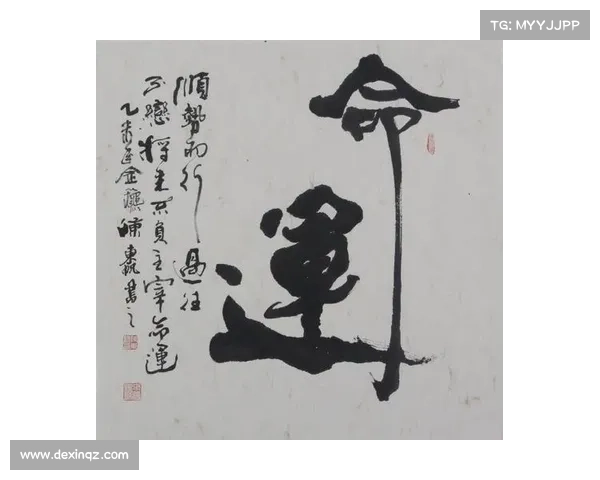 TG: MYYJJPP
命運
順勢而行過往
不戀將来不負主宰命運
乙未 金 書之
www.dexinqz.com